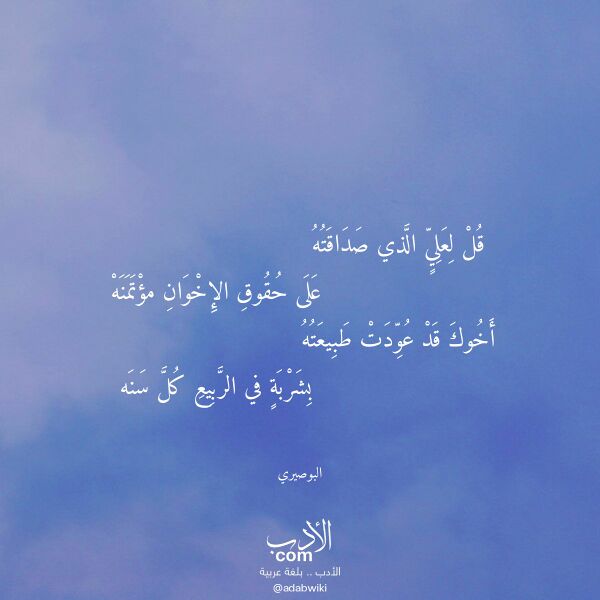 قُلْ لِعَلِيٍّ الَّذي صَدَاقَتُهُ
عَلَى حُقُوقِ الإِخْوَانِ مؤْتَمَنَهْ
أَخُوكَ قَدْ عُوِّدَتْ طَبِيعَتُهُ
بِشَرْبَةٍ في الرَّبيعِ كُلَّ سَنَه
البوصيري
الأدب
com
الأدب .. بلغة عربية
@adabwiki